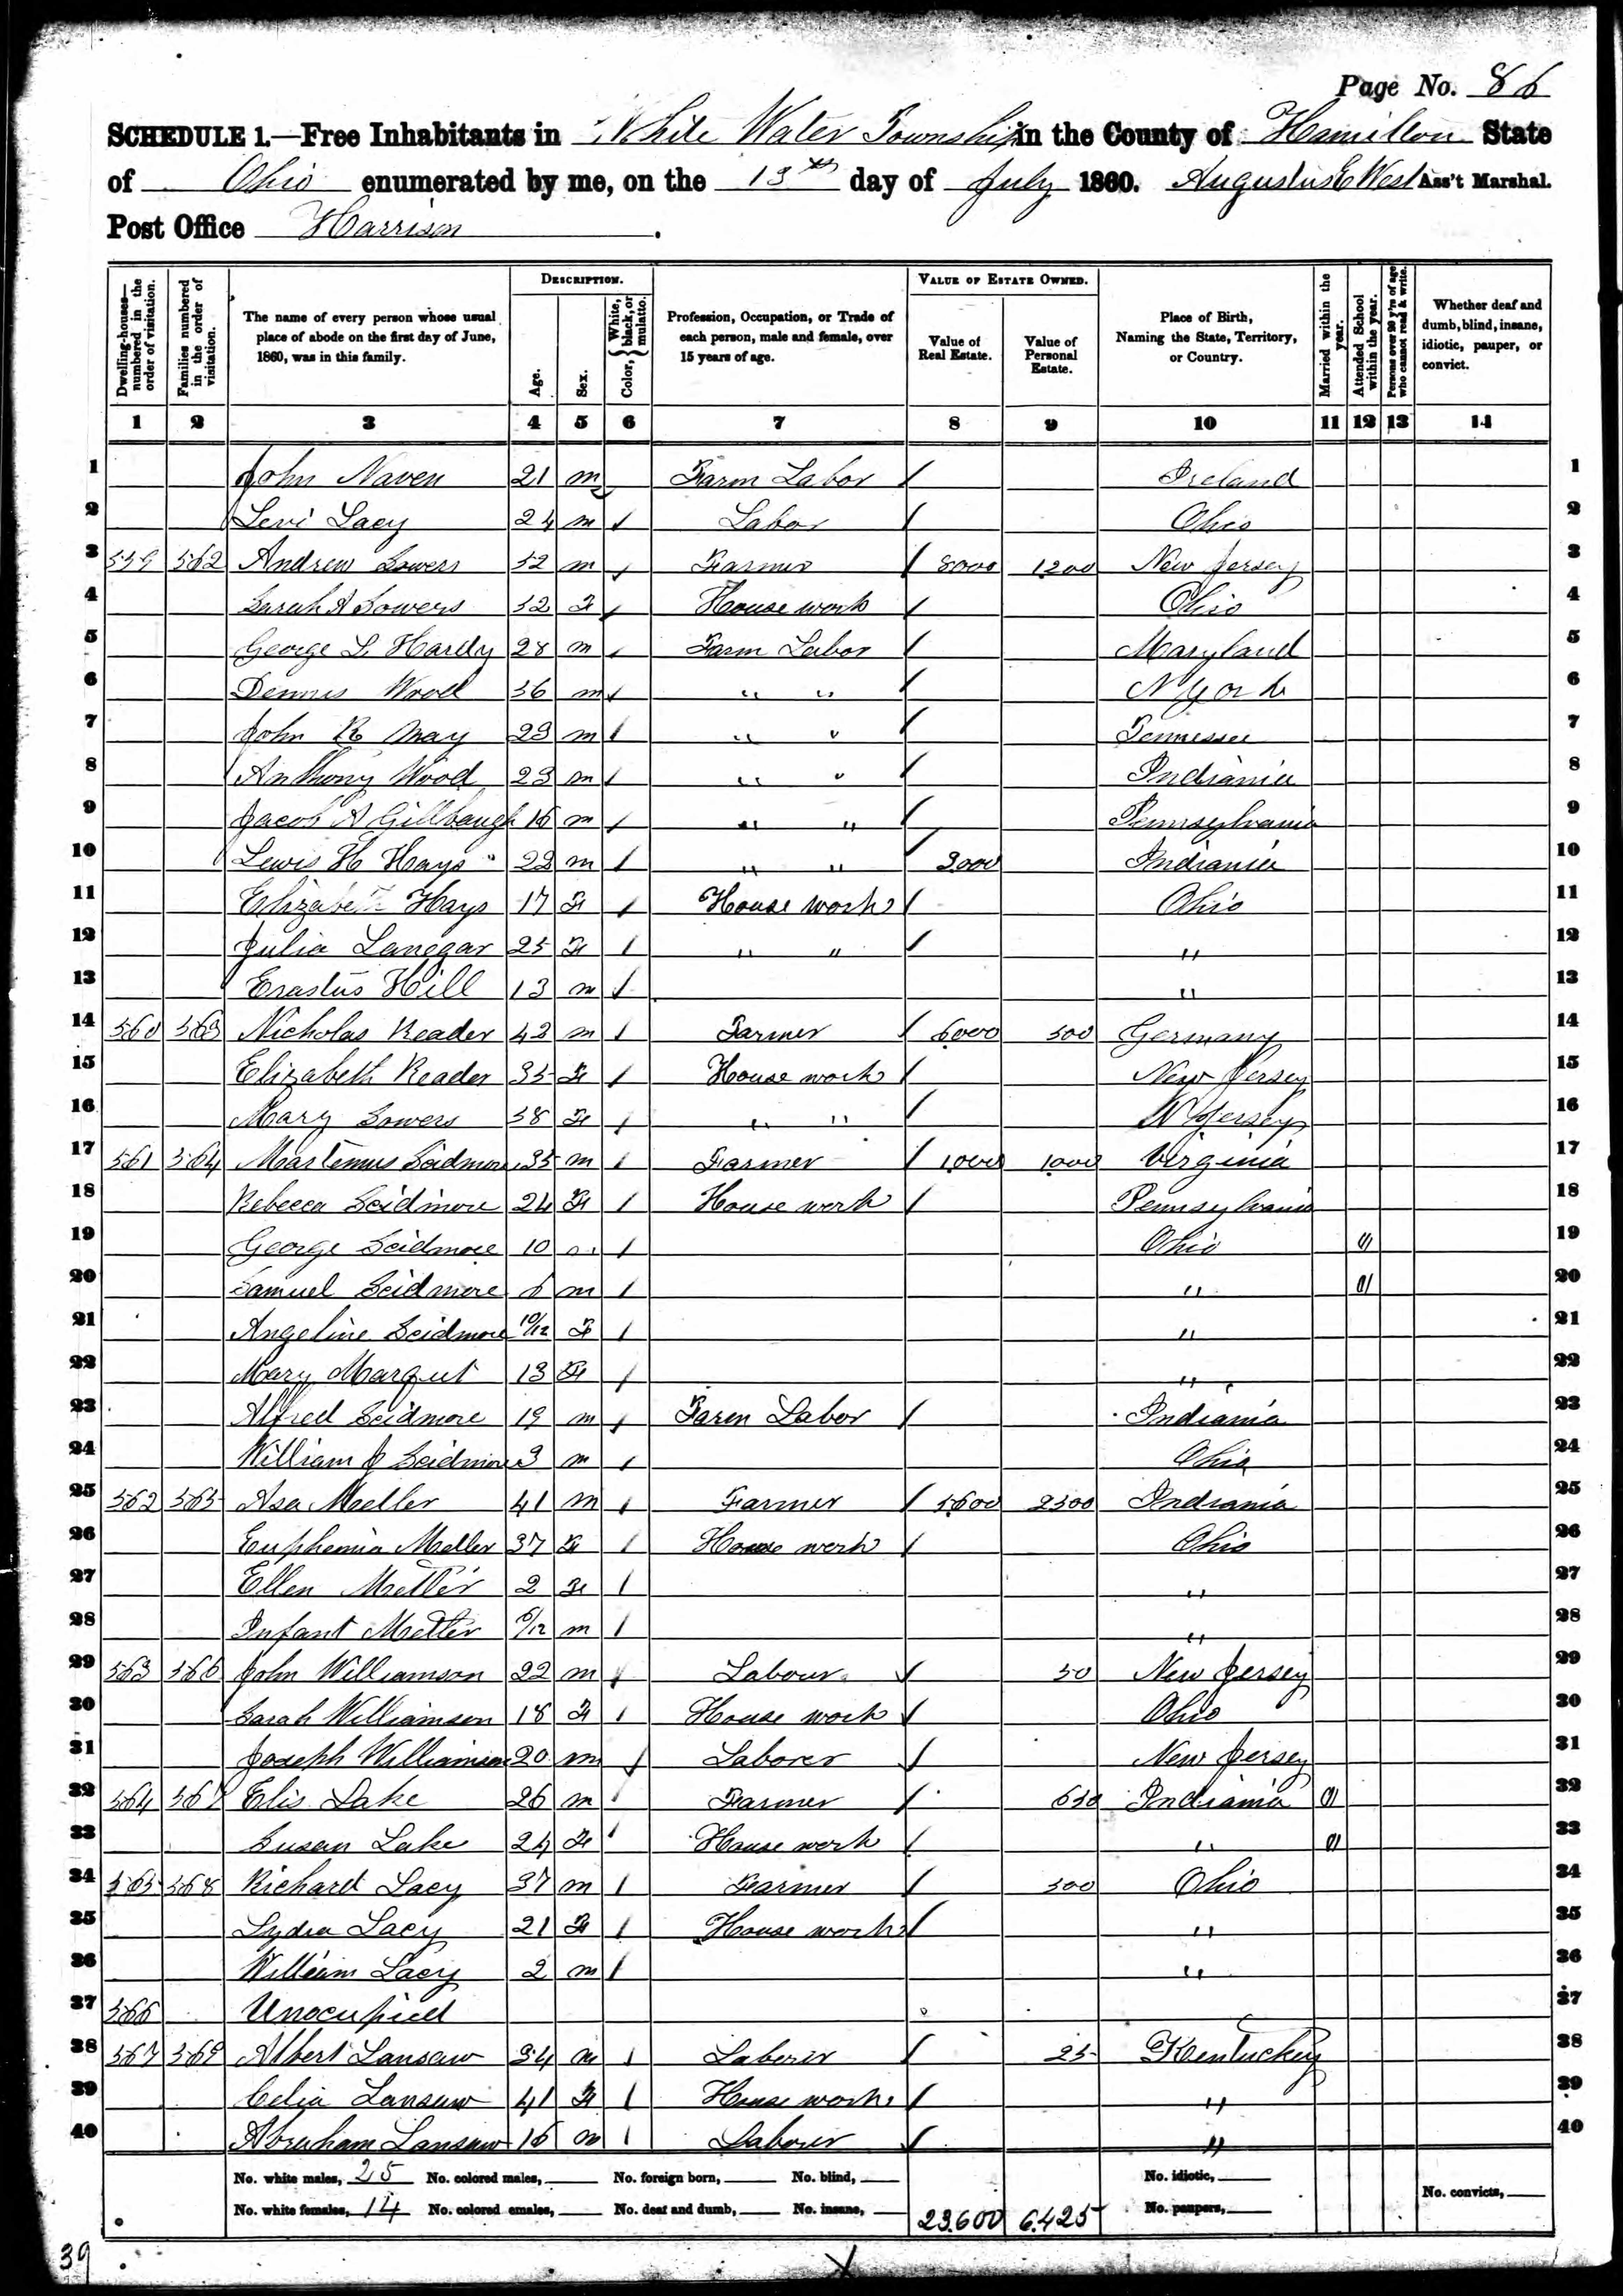 Page No. 86
SCHEDULE 1.—Free Inhabitants in White Water Township in the County of Hamilton State
of Ohio enumerated by me, on the 13th day of July 1860. Augustus E West Ass't Marshal.
Post Office Harrison.
Dwelling-houses—numbered in the order of visitation. Families numbered in the order of visitation. The name of every person whose usual place of abode on the first day of June, 1860, was in this family. DESCRIPTION. Age. Sex. Color, White, black, or mulatto. Profession, Occupation, or Trade of each person, male and female, over 15 years of age. VALUE OF ESTATE OWNED. Value of Real Estate. Value of Personal Estate. Place of Birth, Naming the State, Territory, or Country. Married within the year. Attended School within the year. Persons over 20 y'rs of age who cannot read & write. Whether deaf and dumb, blind, insane, idiotic, pauper, or convict.
1 2 3 4 5 6 7 8 9 10 11 12 13 14
1 John Naven 21 m Farm Labor / Ireland 1
2 Levi Lacy 24 m / Labor / Ohio 2
3 559 562 Andrew Sowers 52 m / Farmer / 8000 1200 New Jersey 3
4 Sarah A Sowers 52 F / House work / Ohio 4
5 George L Hardy 28 m / Farm Labor / Maryland 5
6 Dennis Wood 36 m / " " / N York 6
7 John R May 23 m / " " / Tennessee 7
8 Anthony Wood 23 m / " " / Indiania 8
9 Jacob A Gillbaugh 16 m / " " / Pennsylvania 9
10 Lewis H Hays 22 m / " " / 3000 Indiania 10
11 Elizabeth Hays 17 F / House work / Ohio 11
12 Julia Lanegar 25 F / " " / " 12
13 Erastus Hill 13 m / " 13
14 560 563 Nicholas Reader 42 m / Farmer / 6000 500 Germany 14
15 Elizabeth Reader 35 F / House work / New Jersey 15
16 Mary Sowers 58 F / " " / N Jersey 16
17 561 564 Martemus Scidmore 35 m / Farmer / 1000 1000 Virginia 17
18 Rebecca Scidmore 24 F / House work / Pennsylvania 18
19 George Scidmore 10 m / Ohio / 19
20 Samuel Scidmore 6 m / " / 20
21 Angeline Scidmore 10/12 F / " 21
22 Mary Marqut 13 F / " 22
23 Alfred Scidmore 19 m / Farm Labor / Indiania 23
24 William J Scidmore 3 m / Ohio 24
25 562 565 Asa Meller 41 m / Farmer / 5600 2500 Indiania 25
26 Euphemia Meller 37 F / House work / Ohio 26
27 Ellen Metler 2 F / " 27
28 Infant Metler 6/12 m / " 28
29 563 566 John Williamson 22 m / Labour / 50 New Jersey 29
30 Sarah Williamson 18 F / House work / Ohio 30
31 Joseph Williamson 20 m / Laborer / New Jersey 31
32 564 567 Elis Lake 26 m / Farmer / 650 Indiania / 32
33 Susan Lake 24 F / House work / " / 33
34 565 568 Richard Lacy 37 m / Farmer / 500 Ohio 34
35 Lydia Lacy 21 F / House work / " 35
36 William Lacy 2 m / " 36
37 566 Unocupied 37
38 567 569 Albert Lansaw 34 m / Laborer / 25 Kentuckey 38
39 Celia Lansaw 41 F / House work / " 39
40 Abraham Lansaw 16 m / Laborer / " 40
No. white males, 25 No. colored males, No. foreign born, No. blind, No. idiotic,
No. white females, 14 No. colored emales, No. deaf and dumb, No. insane, 23,600 6,425 No. paupers, No. convicts,
39